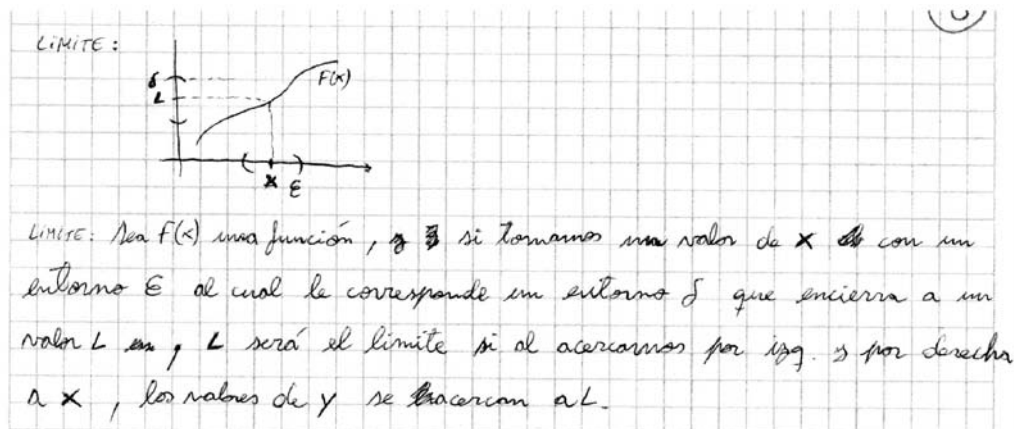 LÍMITE:
δ
L
F(x)
x
ε
LIMITE: Sea F(x) una función, si tomamos un valor de x con un
entorno ε al cual le corresponde un entorno δ que encierra a un
valor L, L será el limite si al acercarnos por izq. y por derecha
a x, los valores de y se acercan a L.